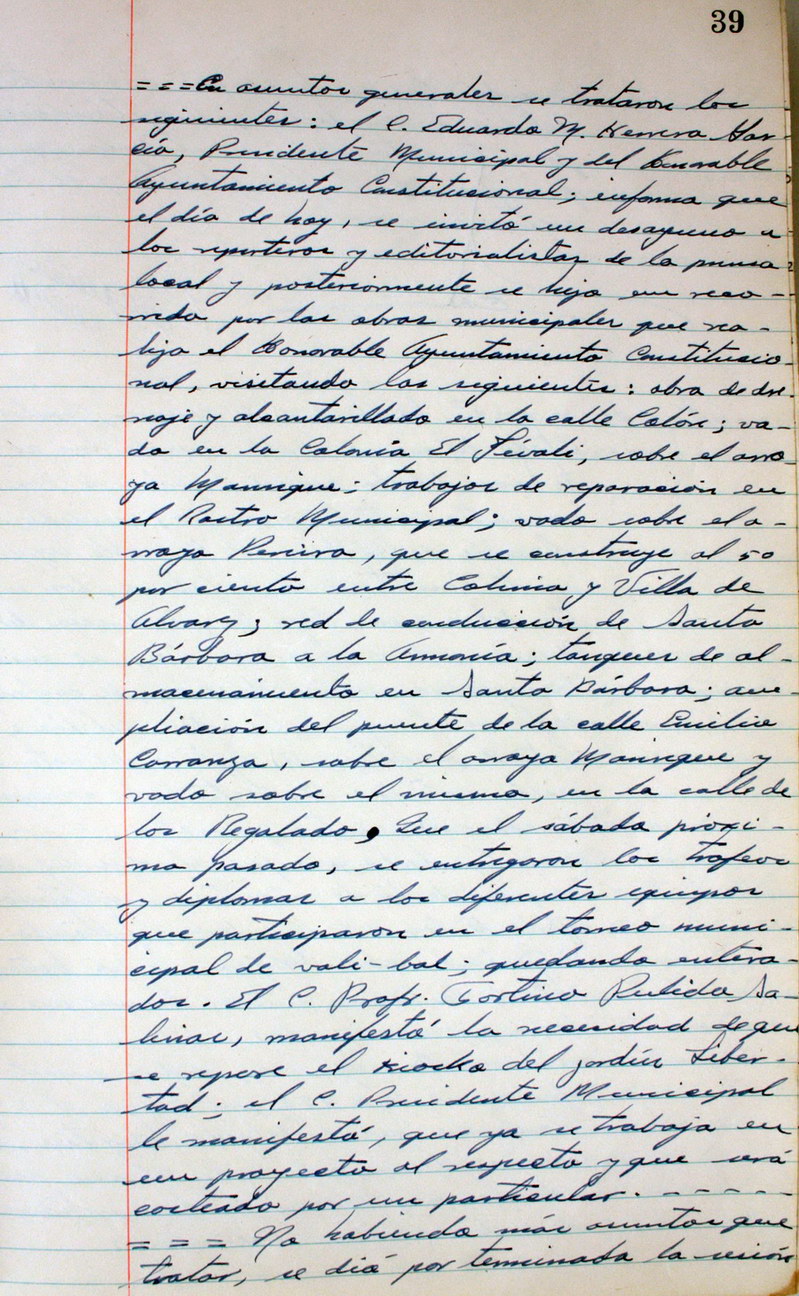 39
= = = En asuntos generales se trataron los
siguientes: el C. Eduardo M. Herrera Gar-
cía, Presidente Municipal y del Honorable
Ayuntamiento Constitucional; informa que
el día de hoy, se invitó un desayuno a
los reporteros y editorialistas de la prensa
local y posteriormente se hizo un reco-
rrido por las obras municipales que rea-
liza el Honorable Ayuntamiento Constitucio-
nal, visitando las siguientes: obra de dre-
naje y alcantarillado en la calle Colón; va-
do en la Colonia El Tívoli, sobre el arro-
yo Manrique; trabajos de reparación en
el Rastro Municipal; vado sobre el a-
rroyo Pereira, que se construye al 50
por ciento entre Colima y Villa de
Alvarez; red de conducción de Santa
Bárbara a la Armonía; tanques de al-
macenamiento en Santa Bárbara; am-
pliación del puente de la calle Emilio
Carranza, sobre el arroyo Manrique y
vado sobre el mismo, en la calle de
los Regalado, Que el sábado próxi-
mo pasado, se entregaron los trofeos
y diplomas a los diferentes equipos
que participaron en el torneo muni-
cipal de voli-bol; quedando entera-
dos. El C. Profr. Fortino Pulido Sa-
linas, manifestó la necesidad de que
se repare el kiosko del jardín Liber-
tad; el C. Presidente Municipal
le manifestó, que ya se trabaja en
un proyecto al respecto y que será
costeado por un particular. - - - - -
= = = No habiendo más asuntos que
tratar, se dió por terminada la sesión